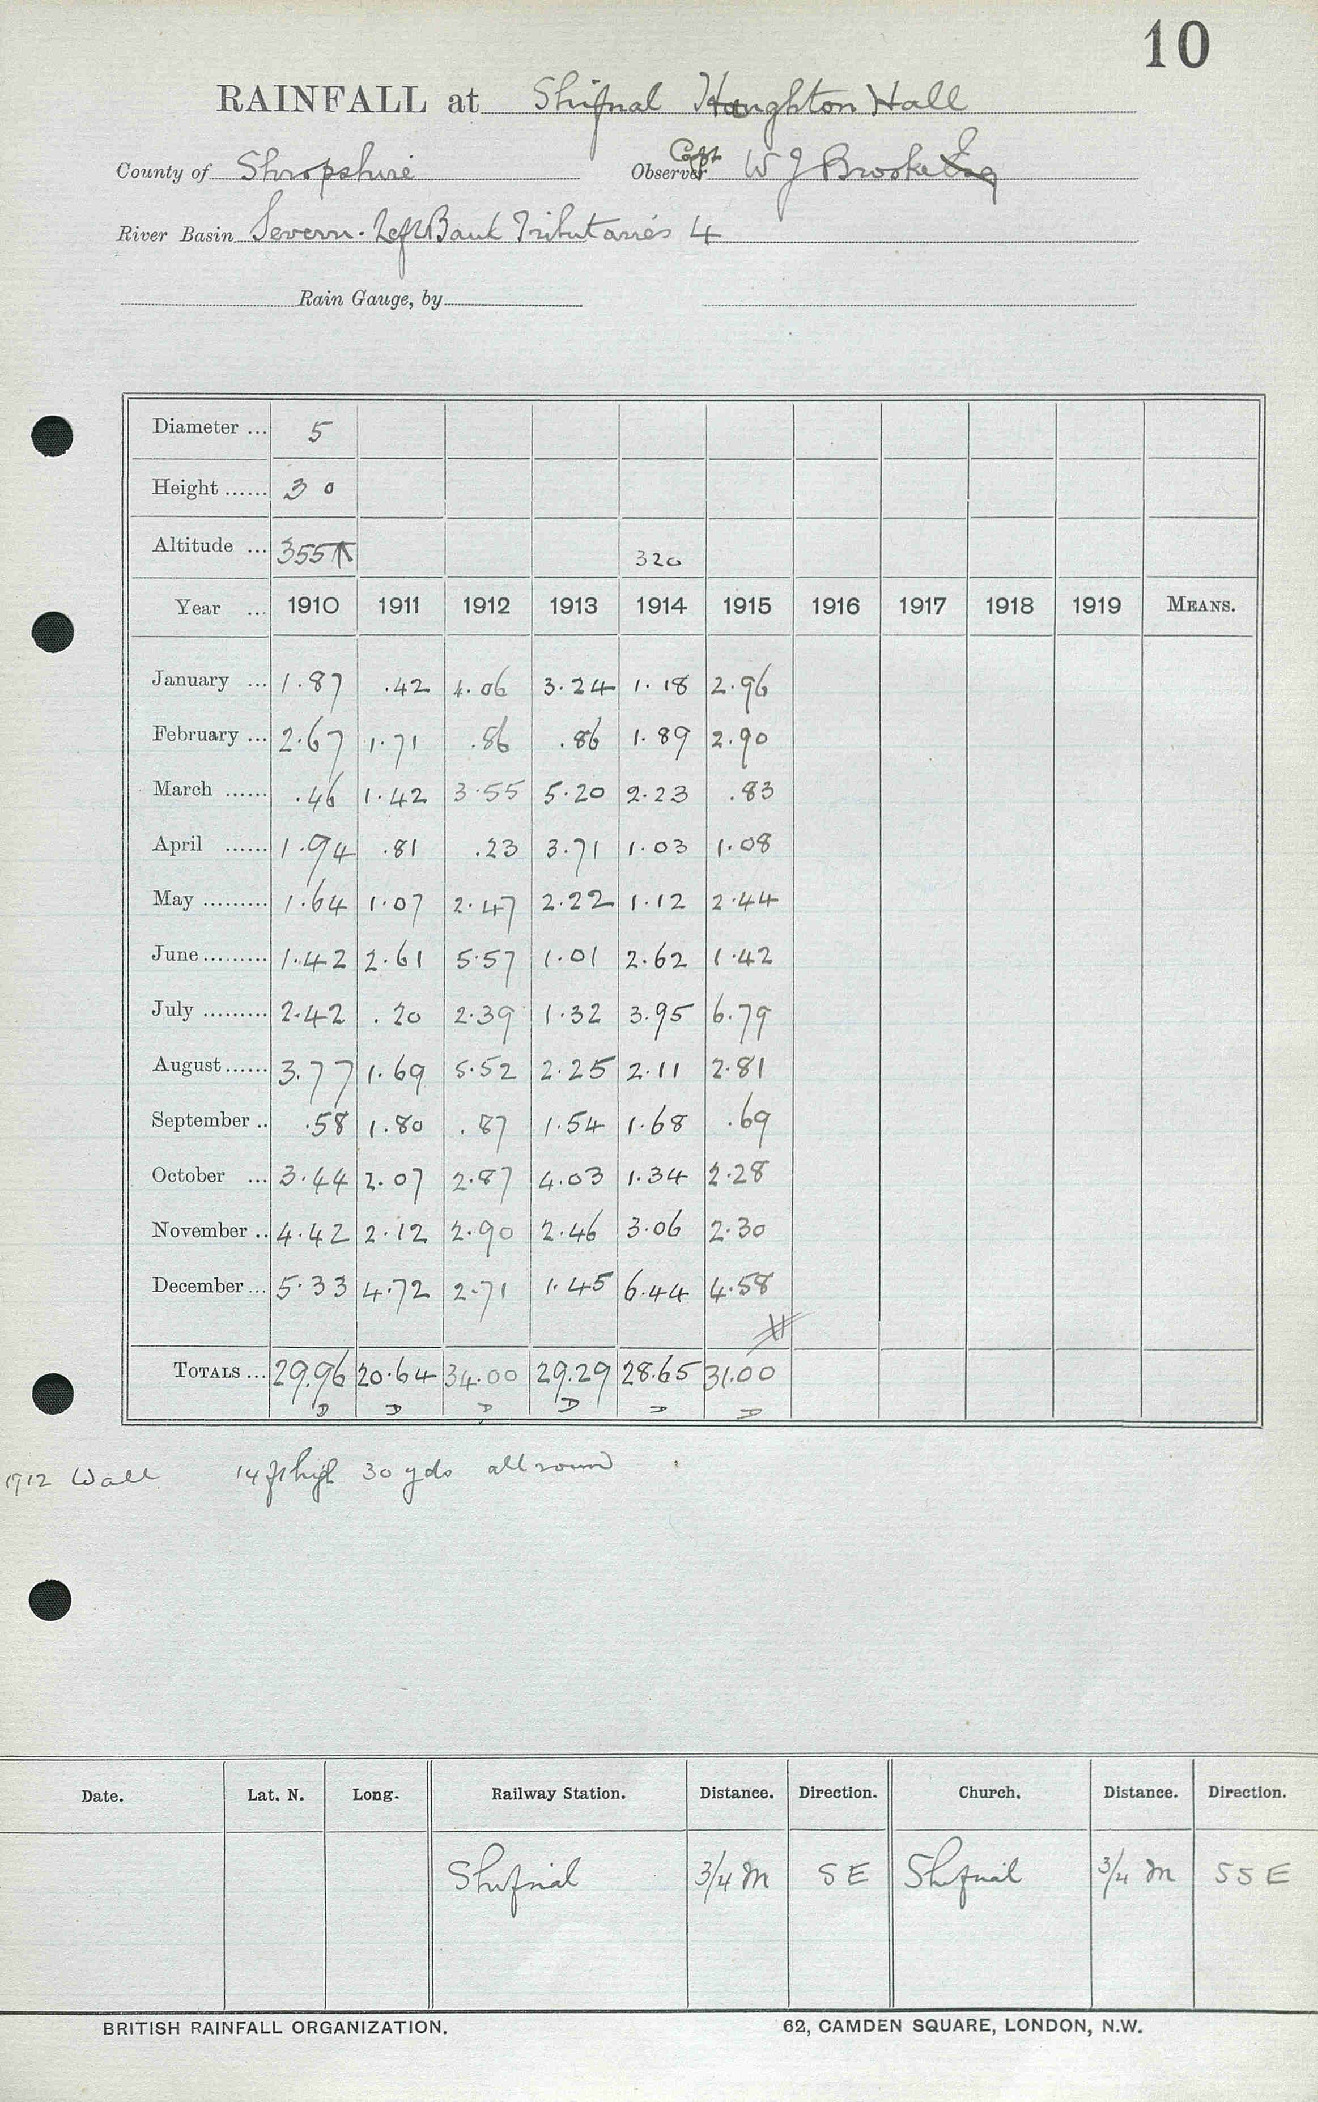 10
RAINFALL at Shifnal Haughton Hall
County of Shropshire Observer Capt W J Brooke Esq
River Basin Severn. Left Bank Tributaries 4
Rain Gauge, by
Diameter ... 5
Height ...... 3 0
Altitude ... 355 ↑ 320
Year ... 1910 1911 1912 1913 1914 1915 1916 1917 1918 1919 MEANS.
January ... 1.87 .42 4.06 3.24 1.18 2.96
February ... 2.67 1.71 .86 .86 1.89 2.90
March ...... .46 1.42 3.55 5.20 2.23 .83
April ...... 1.94 .81 .23 3.71 1.03 1.08
May ......... 1.64 1.07 2.47 2.22 1.12 2.44
June ......... 1.42 2.61 5.57 1.01 2.62 1.42
July ......... 2.42 .20 2.39 1.32 3.95 6.79
August ...... 3.77 1.69 5.52 2.25 2.11 2.81
September .. .58 1.80 .87 1.54 1.68 .69
October ... 3.44 2.07 2.87 4.03 1.34 2.28
November .. 4.42 2.12 2.90 2.46 3.06 2.30
December ... 5.33 4.72 2.71 1.45 6.44 4.58
TOTALS ... 29.96 20.64 34.00 29.29 28.65 31.00
D D D D D D
1912 Wall 14 ft high 30 yds all round
Date. Lat. N. Long. Railway Station. Distance. Direction. Church. Distance. Direction.
Shifnal 3/4 M S E Shifnal 3/4 M S S E
BRITISH RAINFALL ORGANIZATION. 62, CAMDEN SQUARE, LONDON, N.W.